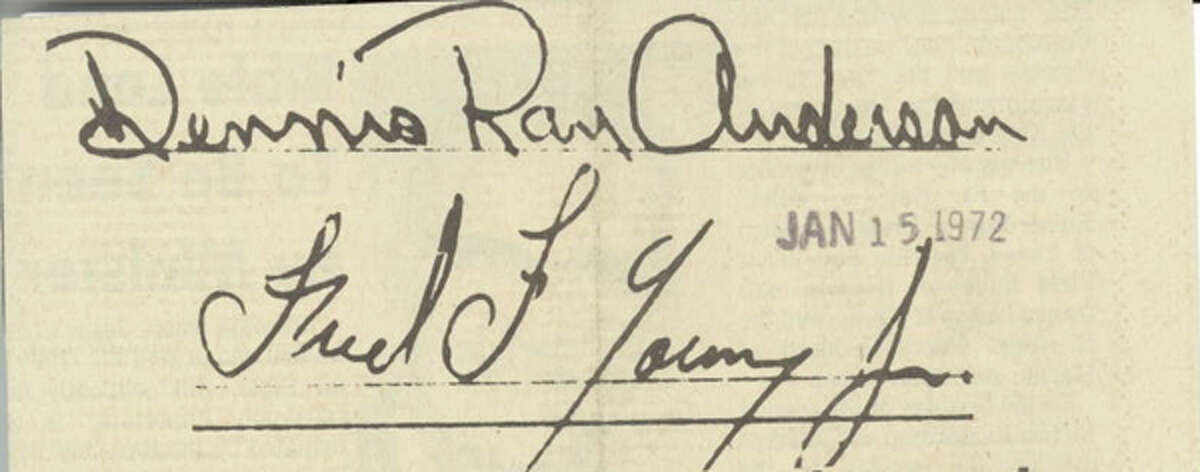 Dennis Ray Anderson
JAN 15 1972
Fred F Young Jr.